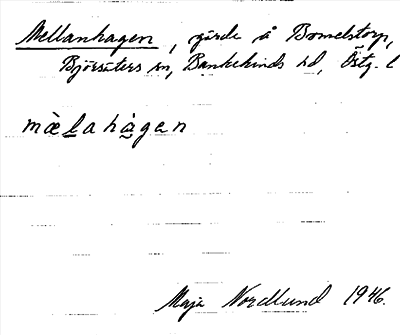 Mellanhagen, gärde å Bomelstorp,
Björsäters sn, Bankekinds hd, Östg. l
mælahàgen
Maja Nordlund 1946.